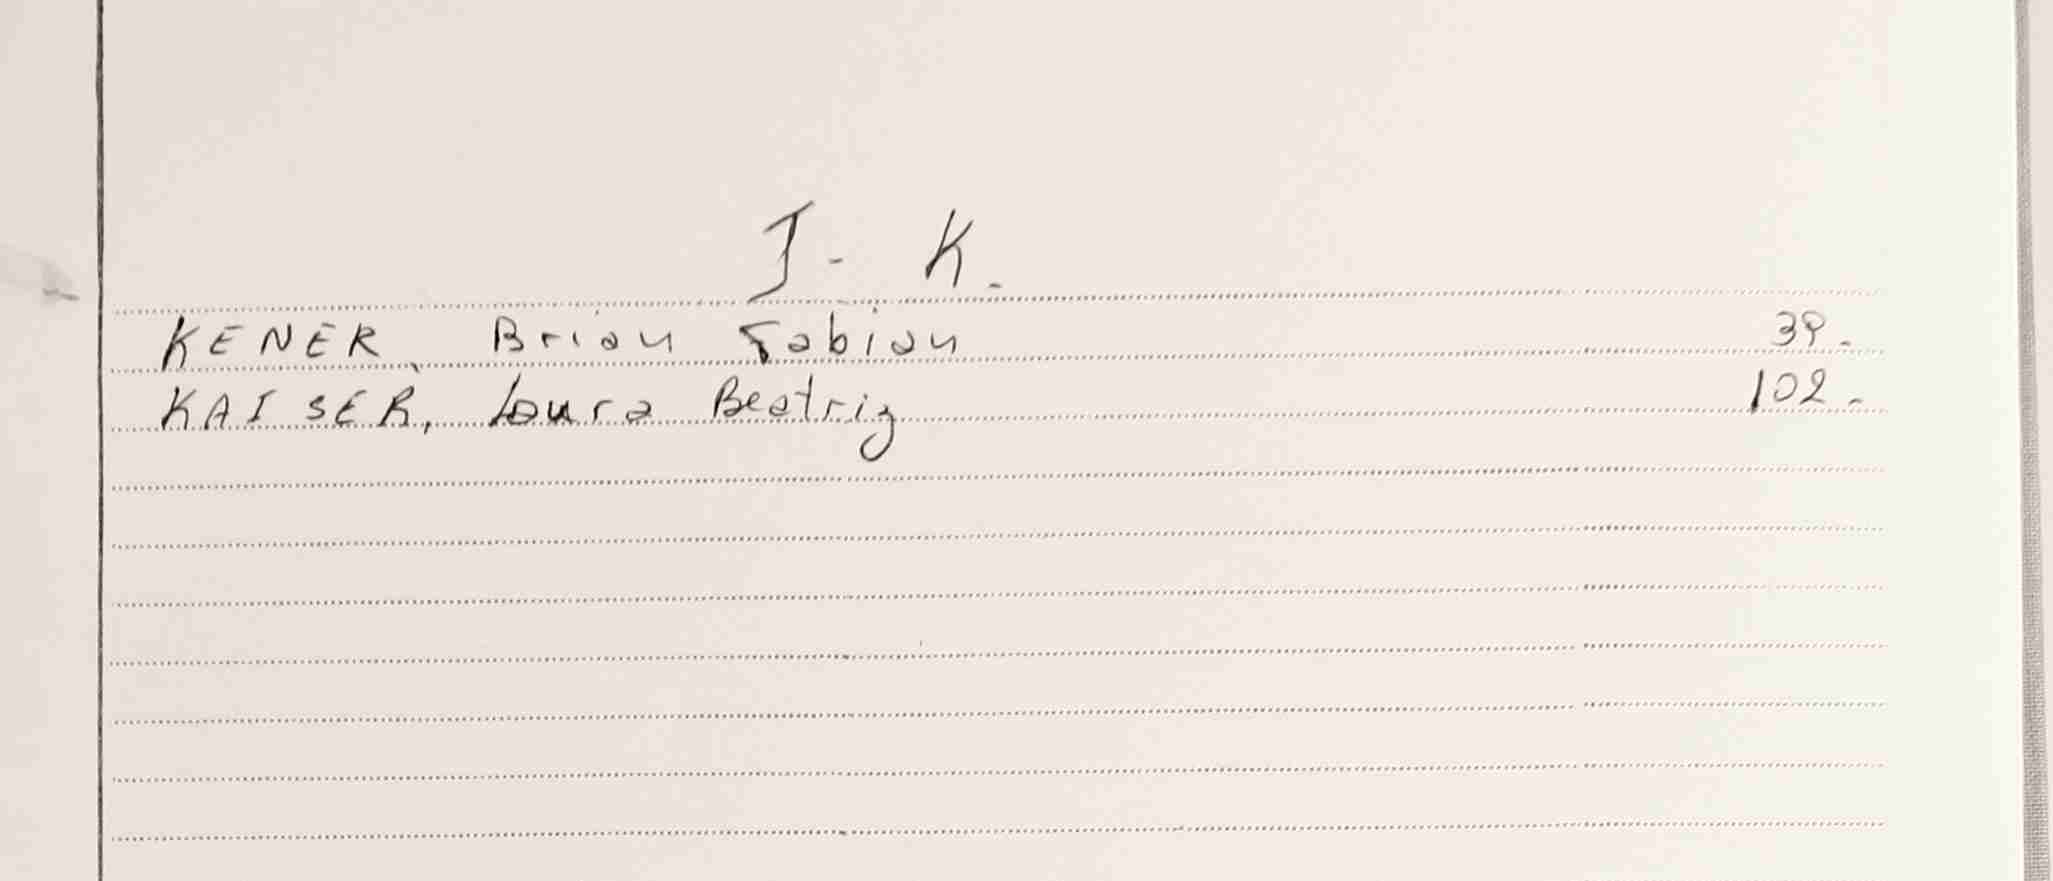 J - K.
KENER, Brian Fabian 39.-
KAISER, Laura Beatriz 102.-